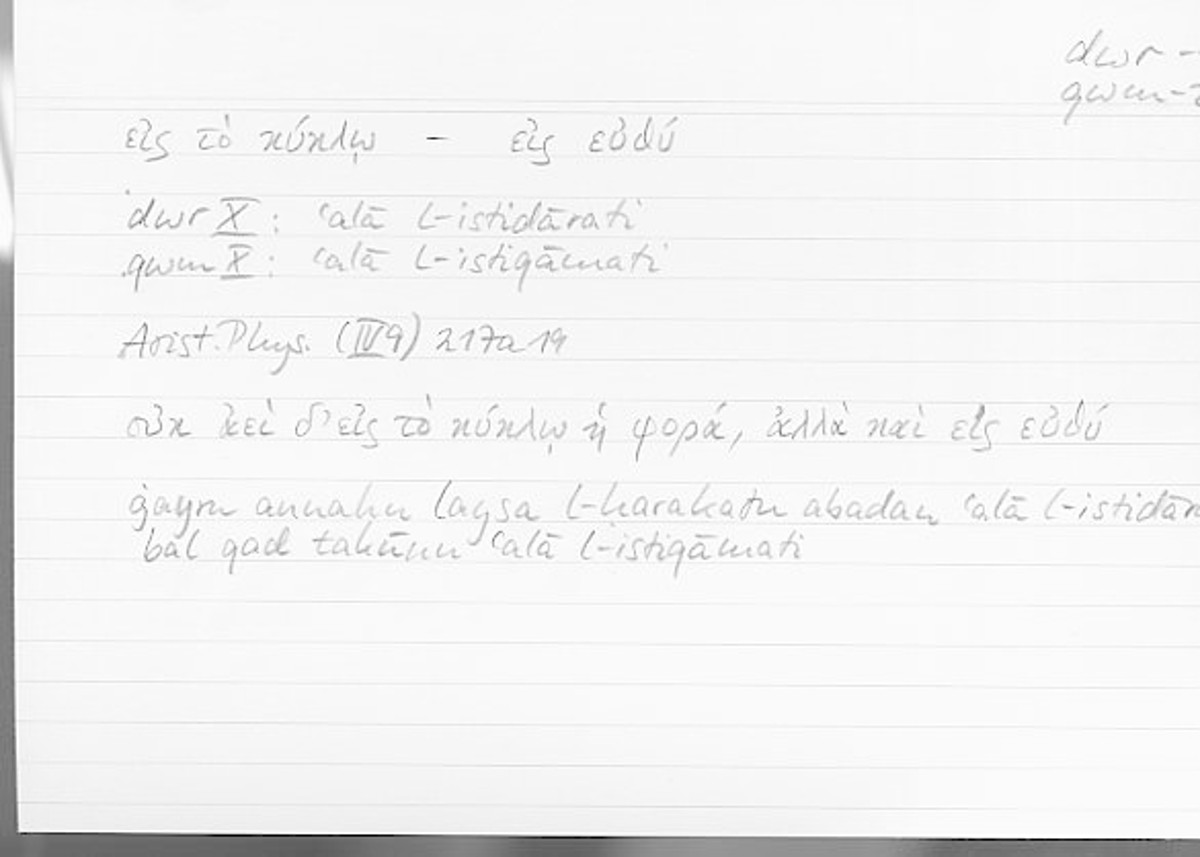 dwr –
qwm –
εἰς τὸ κύκλῳ – εἰς εὐθύ
dwr X : ʿalā l-istidārati
qwm X : ʿalā l-istiqāmati
Arist. Phys. (IV 9) 217a 19
οὐκ ἀεὶ δ' εἰς τὸ κύκλῳ ἡ φορά, ἀλλὰ καὶ εἰς εὐθύ
ġayru annahu laysa l-harakatu abadan ʿalā l-istidār
bal qad takūnu ʿalā l-istiqāmati